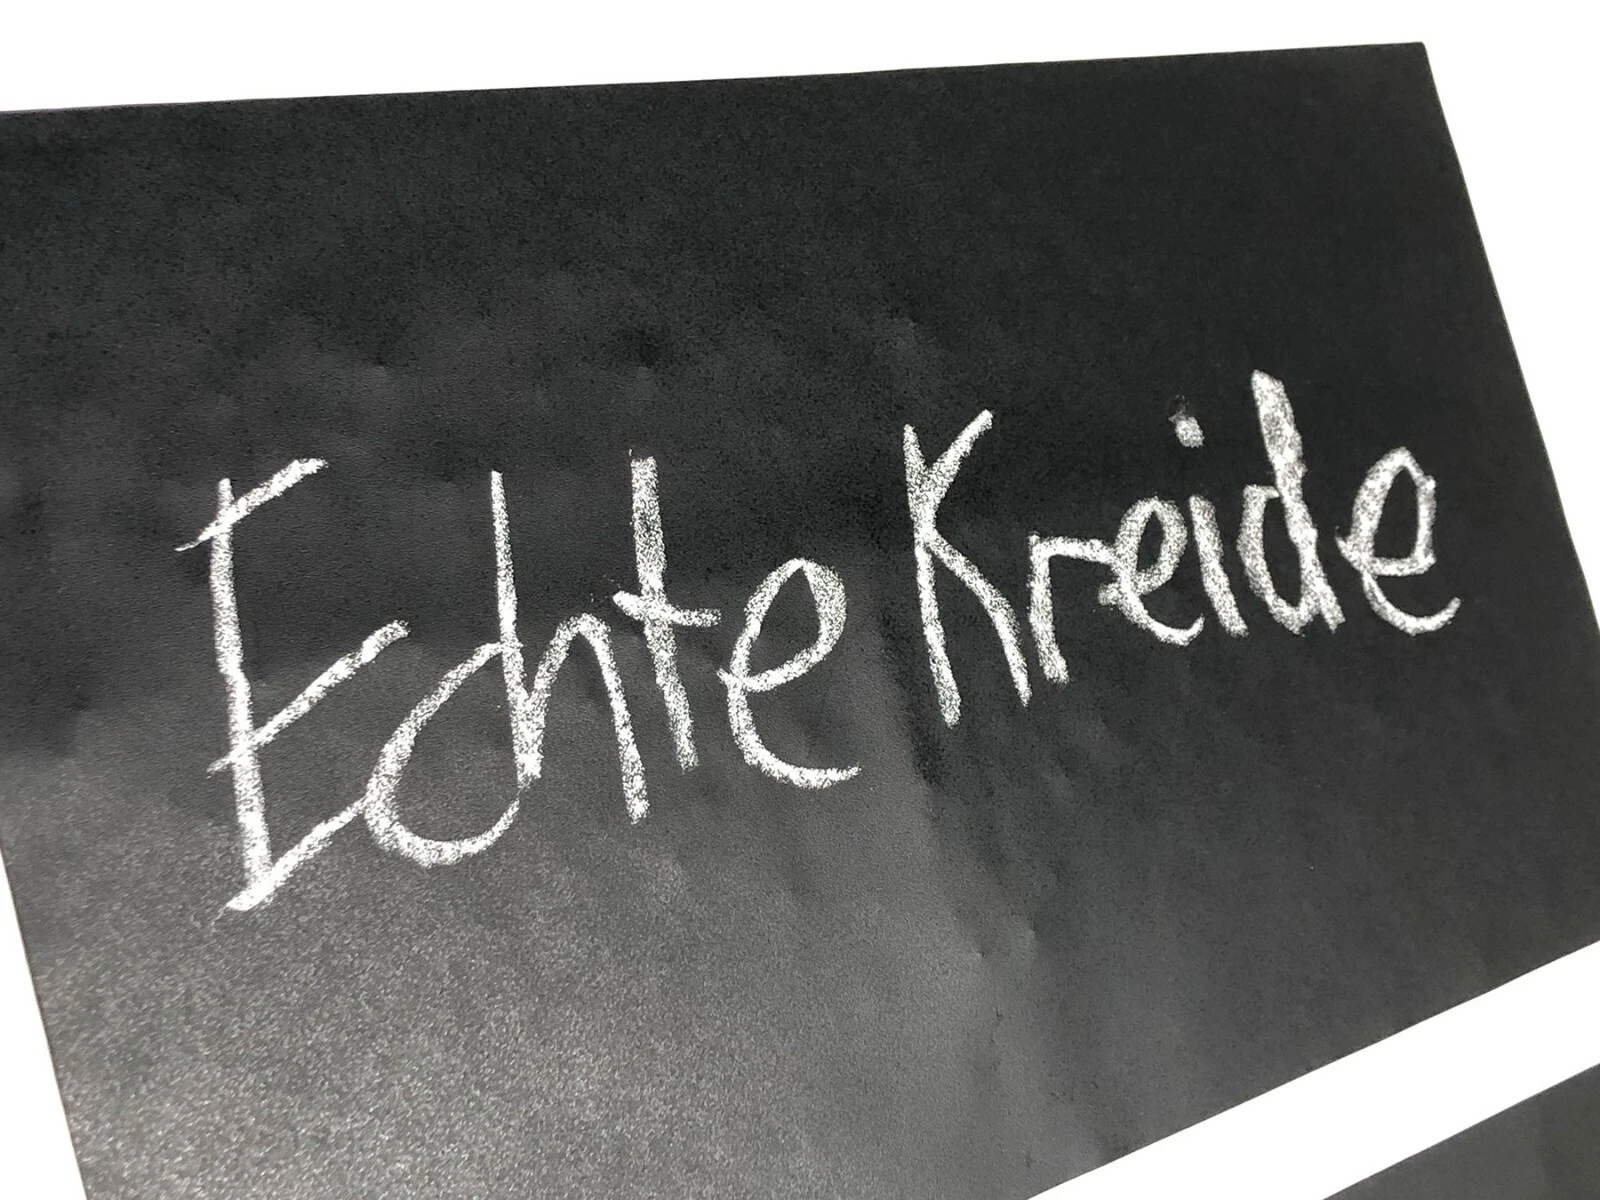 Echte Kreide